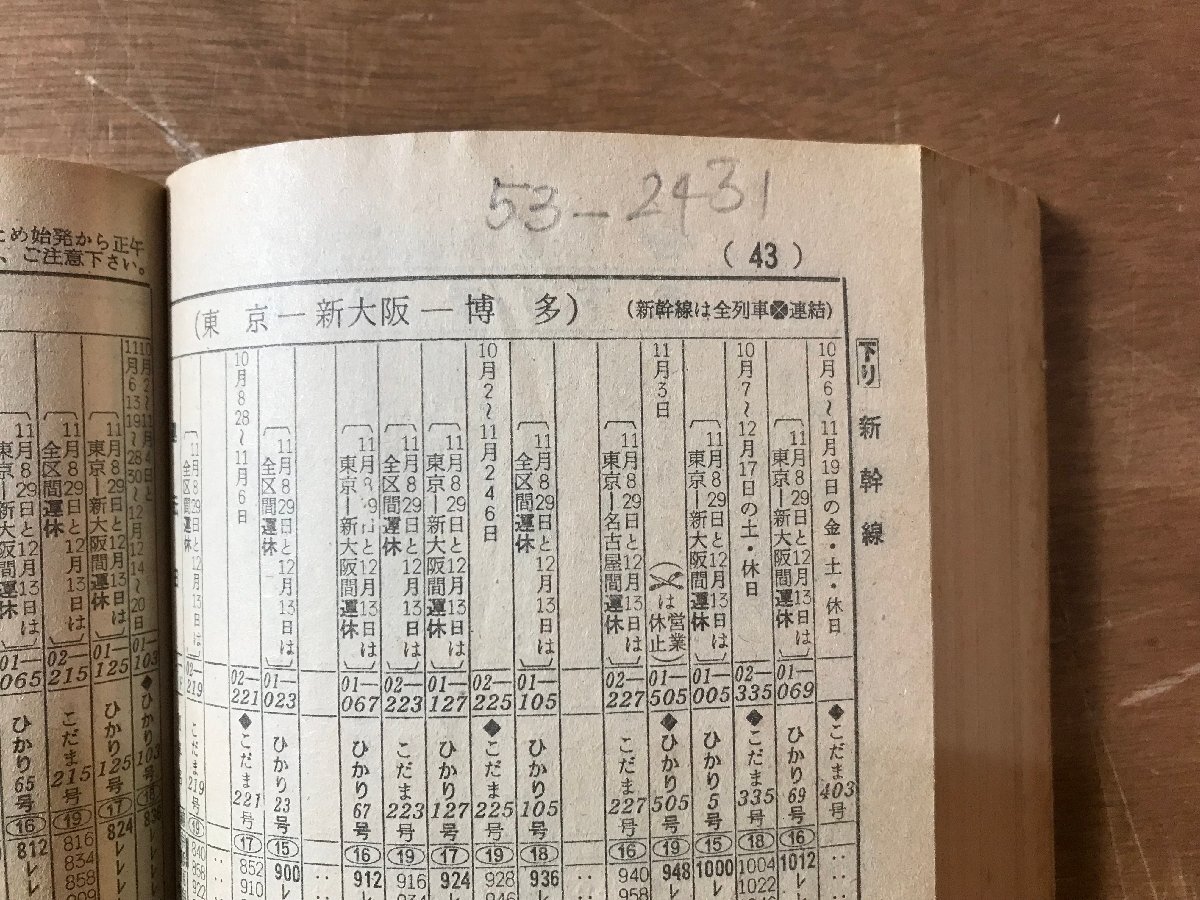 53-2431
(43)
ため始発から正午
、ご注意下さい。
(東 京―新大阪―博 多)
(新幹線は全列車連結)
下り
新幹線
10月6～11月19日の金・土・休日
01―
069
◆こだま403号
〔11月8 29日と12月13日は
東京―新大阪間運休〕
ひかり69号
⑯
1012
10月7～12月17日の土・休日
02―
335
◆こだま335号
⑱
1004
1022
〔11月8 29日と12月13日は
東京―新大阪間運休〕
01―
005
ひかり5号
⑮
1000
レ
11月3日
(は営業休止)
01―
505
◆ひかり505号
⑲
948
レ
〔11月8 29日と12月13日は
東京―名古屋間運休〕
02―
227
こだま227号
⑯
940
958
〔11月8 29日と12月13日は
全区間運休〕
01―
105
ひかり105号
⑱
936
レ
10月2～11月24 6日
02―
225
◆こだま225号
⑲
928
946
〔11月8 29日と12月13日は
東京―新大阪間運休〕
01―
127
ひかり127号
⑰
924
レ
〔11月8 29日と12月13日は
全区間運休〕
02―
223
こだま223号
⑲
916
934
〔11月8 29日と12月13日は
東京―新大阪間運休〕
01―
067
ひかり67号
⑯
912
レ
〔11月8 29日と12月13日は
全区間運休〕
01―
023
ひかり23号
⑮
900
レ
10月8 28～11月6日
02―
221
◆こだま221号
⑰
852
910
〔11月8 29日と12月13日は
全区間運休〕
02―
219
こだま219号
⑲
840
858
922
01―
103
◆ひかり103号
836
〔11月8 29日と12月13日は
東京―新大阪間運休〕
01―
125
ひかり125号
⑰
824
レ
レ
〔11月8 29日と12月13日は
全区間運休〕
02―
215
こだま215号
⑲
816
834
858
909
11月8 29日と12月13日は
東京―新大阪間運休〕
01―
065
ひかり65号
⑯
812
レ
レ